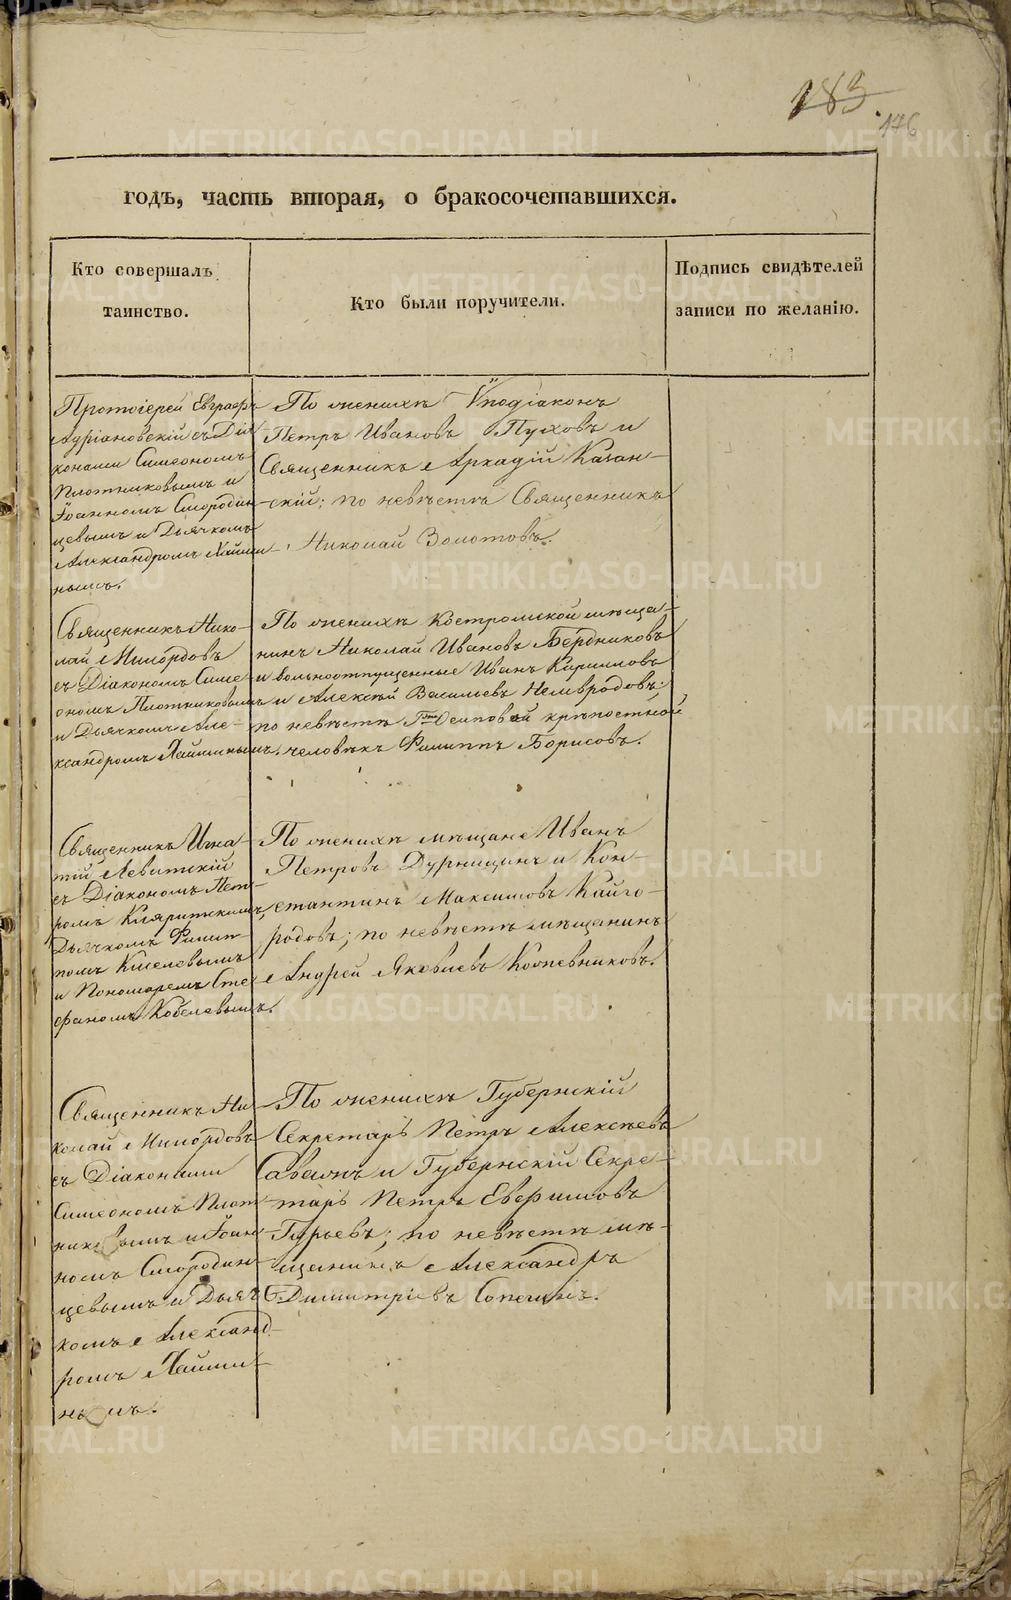 183
176
годъ, часть вторая, о бракосочетавшихся.
Кто совершалъ
таинство.
Кто были поручители.
Подпись свидѣтелей
записи по желанію.
Протоіерей Евграфъ
съ Діа-
конами Симеономъ
Плотниковымъ и
Іоанномъ Смородин-
цевымъ и Дьячкомъ
Александромъ Лаьми-
нымъ.
По женихѣ Vподіаконъ
Петръ Ивановъ Пуховъ и
Священникъ Аркадій Казан-
скій; по невѣстѣ Священникъ
Николай Золотовъ.
Священникъ Нико-
лай Милордовъ
съ Діакономъ Симе-
ономъ Плотниковымъ
и Дьячкомъ Але-
ксандромъ
По женихѣ Костромской мѣща-
нинъ Николай Ивановъ Бердниковъ
и вольноотпущенные Иванъ Кириловъ
и Алексѣй Васильевъ Немвродовъ;
по невѣстѣ Гжи Осиповой крѣпостной
человѣкъ Филиппъ Борисовъ.
Священникъ Игна-
тій Левитскій
съ Діакономъ Пет-
ромъ
Дьячкомъ Филип-
помъ Киселевымъ
и Пономаремъ Сте-
фаномъ Кобелевымъ.
По женихѣ мѣщане Иванъ
Петровъ Дурницинъ и Кон-
стантинъ Максимовъ Кайго-
родовъ; по невѣстѣ мѣщанинъ
Андрей Яковлевъ Коопевниковъ.
Священникъ Ни-
колай Милордовъ
съ Діаконами
Симеономъ Плот-
никовымъ и Іоан-
номъ Смородин-
цевымъ и Дьяч-
комъ Александ-
ромъ
нымъ.
По женихѣ Губернскій
Секретарь Петръ Алексѣевъ
и Губернскій Секре-
тарь Петръ Евфимовъ
Гурьевъ; по невѣстѣ мѣ-
щанинъ Александръ
Димитріевъ
METRIKI.GASO-URAL.RU